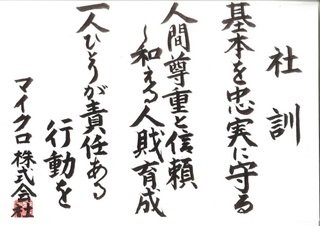 社訓
基本を忠実に守る
人間尊重と信頼
〜和える人財育成
一人ひとりが責任ある
行動を
マイクロ株式会社